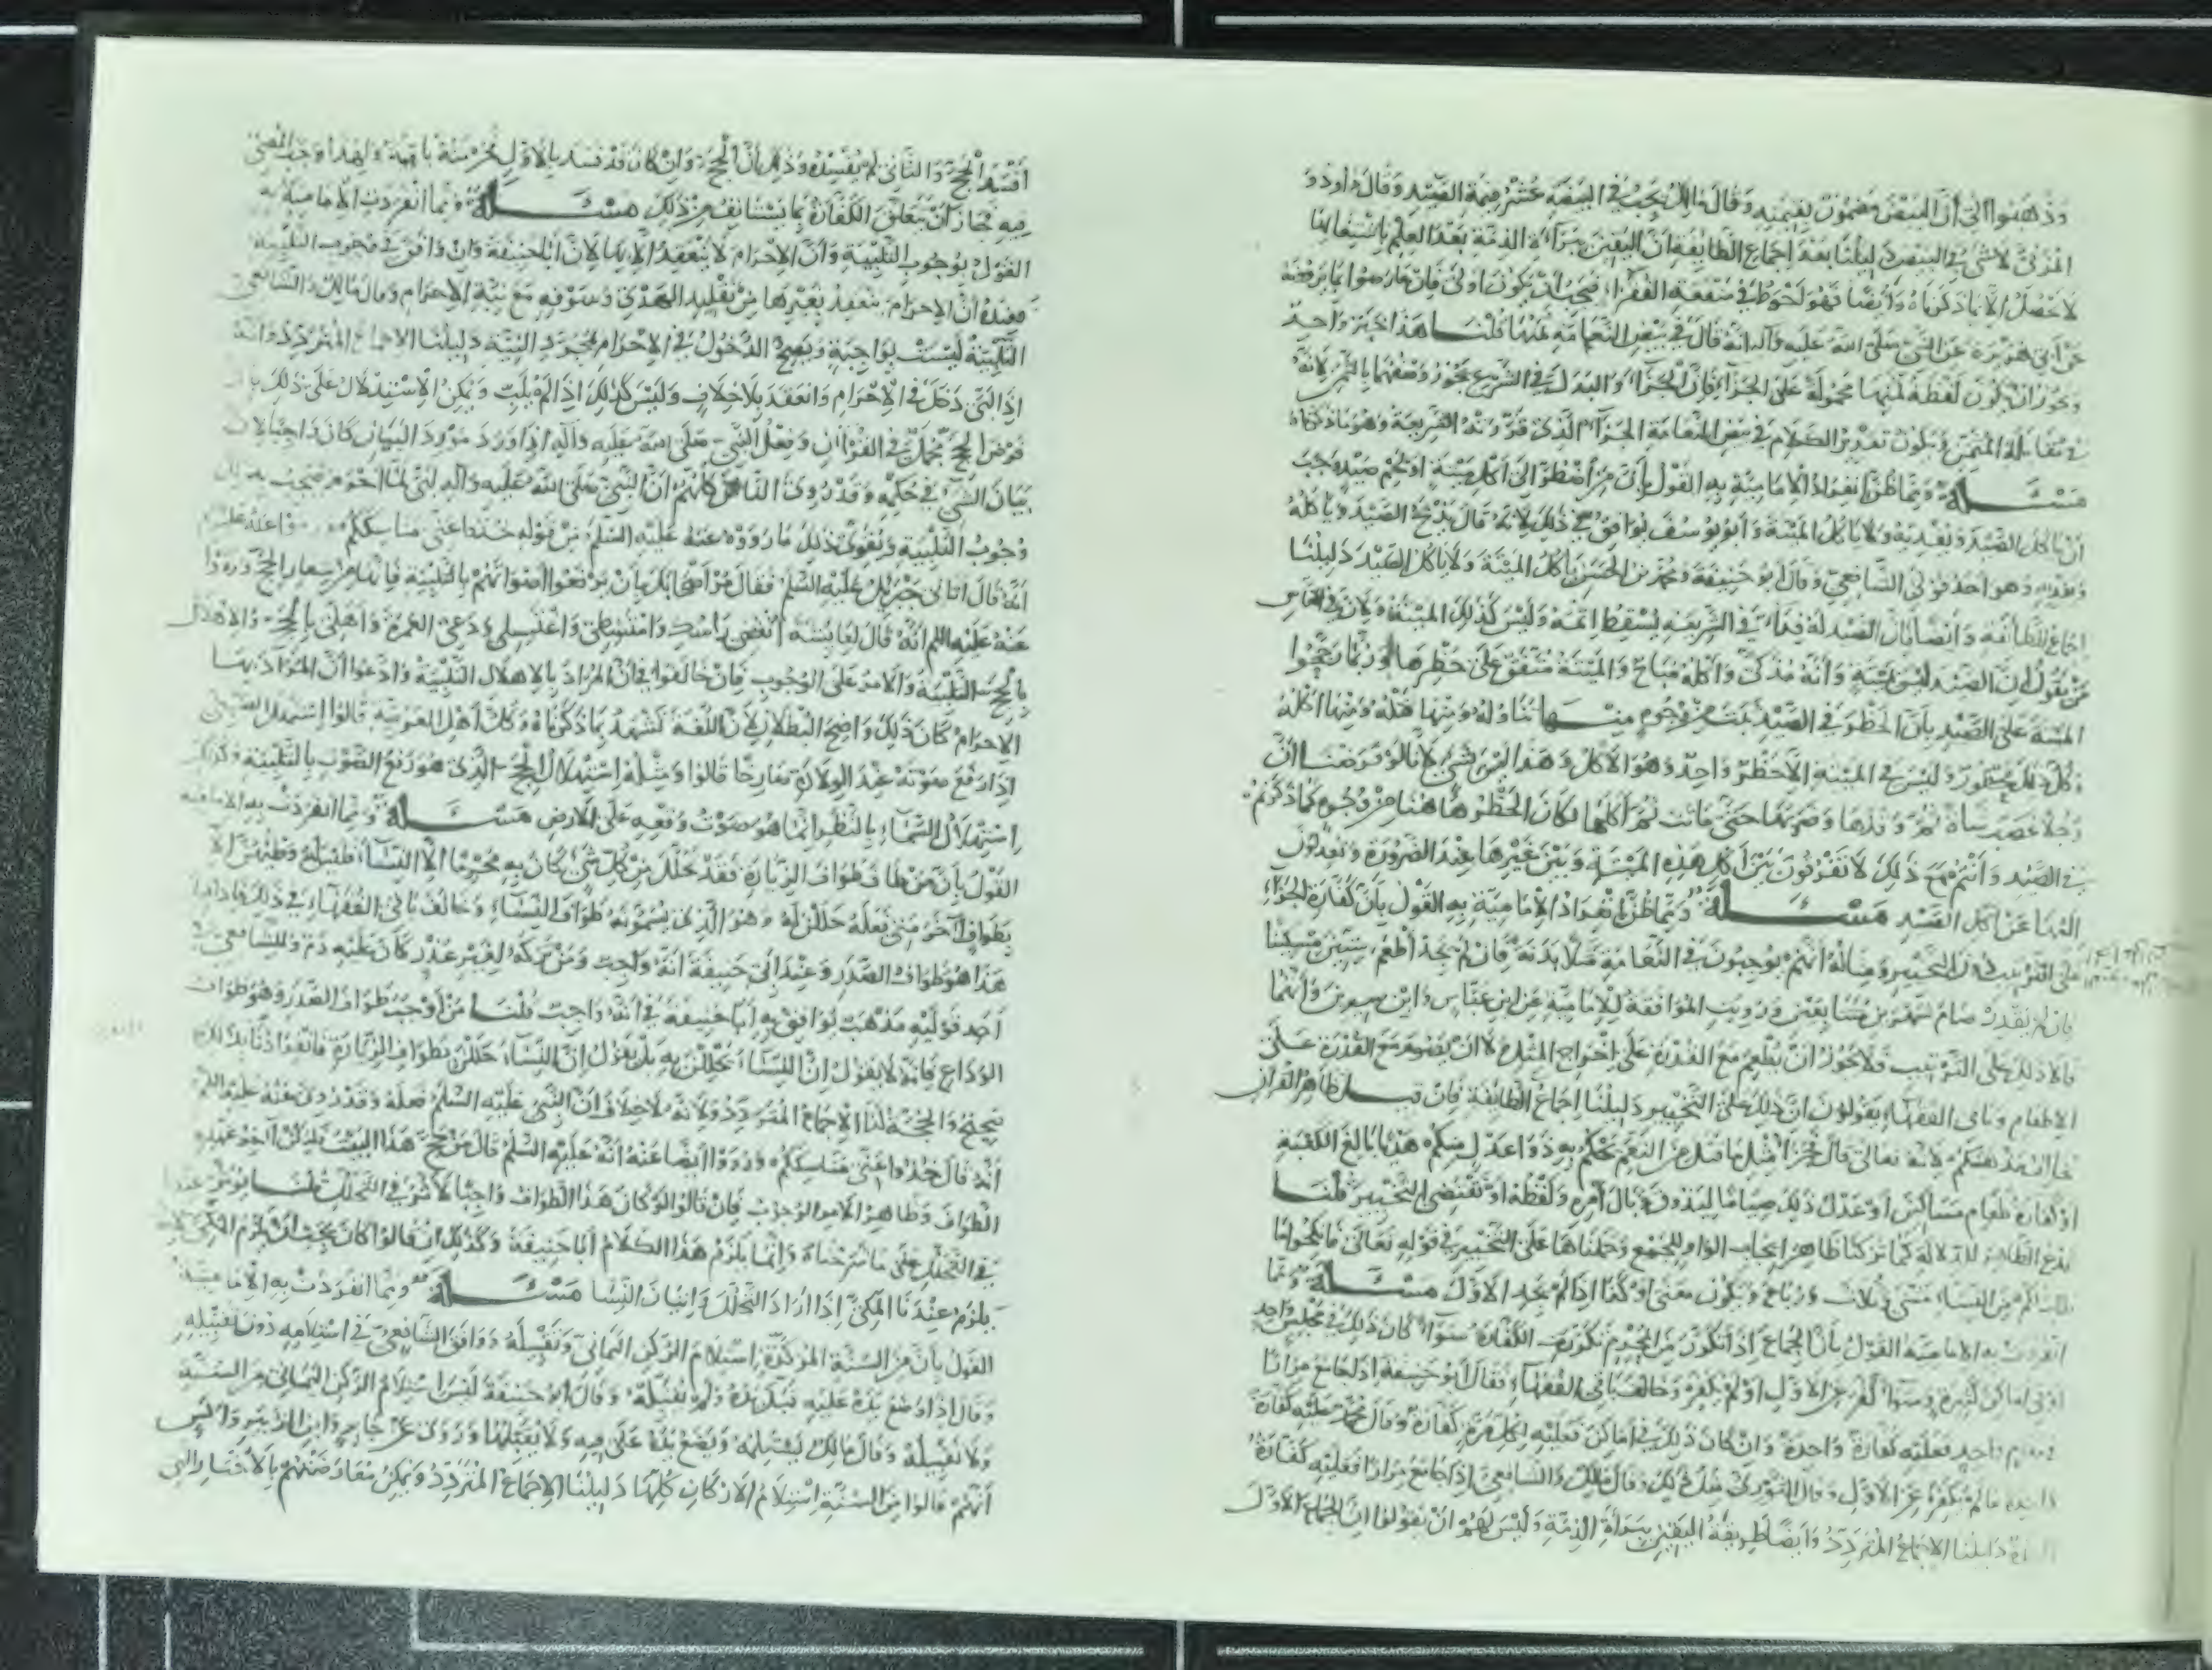 وذهبوا الى أن البيض مضمون بقيمته وقال مالك يجب في البيضة عشر قيمة الصيد وقال داود و
المزني لا شيء في البيض دليلنا بعد اجماع الطائفة ان اليقين ببراءة الذمة بعد العلم باشتغالها
لا يحصل الا بما ذكرناه وأيضا فهو أحوط في منفعة الفقراء فيجب أن يكون اولى فان عارضوا بما يروونه
عن أبي هريرة عن النبي صلى الله عليه وآله انه قال في بيض النعامة ثمنها قلنا هذا خبر واحد
ويجوز ان يكون لفظة ثمنها محمولة على الجزاء فإن الجزاء والبدل في الشرع يجوز وصفهما بالثمن لانه
في مقابلة المثمن ويكون تقدير الكلام في بيض النعامة الجزاء الذي قررته الشريعة وهو ما ذكرناه
مسئلة ومما ظن انفراد الامامية به القول بأن من اضطر الى أكل ميتة او لحم صيد وجب
أن يأكل الصيد ويفديه ولا يأكل الميتة وأبو يوسف يوافق في ذلك لانه قال يذبح الصيد ويأكله
ويفديه وهو احد قولى الشافعي وقال أبو حنيفة ومحمد بن الحسن يأكل الميتة ولا يأكل الصيد دليلنا
اجماع الطائفة وأيضا فان الصيد له فداء في الشريعة يسقط اثمه وليس كذلك الميتة ولان في الناس
من يقول ان الصيد ليس بميتة وأنه مذكى وأكله مباح والميتة متفق على حظرها وربما رجحوا
الميتة على الصيد بأن الحظر في الصيد ثبت من وجوه منها تناوله ومنها قتله ومنها اكله
وكل ذلك محظور وليس في الميتة الا حظر واحد وهو الأكل وهذا ليس بشيء لأنا لو فرضنا ان
رجلا غصب شاة ثم وقذها وضربها حتى ماتت ثم أكلها لكان الحظر ها هنا من وجوه كما ذكرتم
في الصيد وأنتم مع ذلك لا تفرقون بين أكل هذه الميتة وبين غيرها عند الضرورة وتعدلون
اليها عن أكل الصيد مسئلة ومما ظن انفراد الامامية به القول بأن كفارة الجزاء
على الترتيب دون التخيير ومثاله انهم يوجبون في النعامة مثلا بدنة فان لم يجد أطعم ستين مسكينا
فان لم يقدر صام شهرين متتابعين ورويت الموافقة للإمامية عن ابن عباس وابن سيرين وأنهما
قالا ذلك على الترتيب فلا يجوز أن يطعم مع القدرة على اخراج المثل ولا ان يصوم مع القدرة على
الاطعام وباقي الفقهاء يقولون ان ذلك على التخيير دليلنا اجماع الطائفة فان قيل ظاهر القرآن
يخالف مذهبكم لانه تعالى قال فجزاء مثل ما قتل من النعم يحكم به ذوا عدل منكم هديا بالغ الكعبة
او كفارة طعام مساكين او عدل ذلك صياما ليذوق وبال أمره ولفظة أو تقتضي التخيير قلنا
ندع الظاهر للدلالة كما تركنا ظاهر ايجاب الواو للجمع وحملناها على التخيير في قوله تعالى فانكحوا ما
طاب لكم من النساء مثنى وثلاث ورباع ويكون معنى او كذا اذا لم يجد الأول مسئلة ومما
انفردت به الامامية القول بأن الجماع إذا تكرر من المحرم تكررت الكفارة سواء كان ذلك في مجلس واحد
او في اماكن كثيرة وسواء كفر عن الاول او لم يكفر وخالف باقي الفقهاء فقال أبو حنيفة اذا جامع مرارا
في مقام واحد فعليه كفارة واحدة وان كان ذلك في أماكن فعليه لكل مرة كفارة وقال محمد عليه كفارة
واحدة ما لم يكفر عن الاول وقال الثوري مثل ذلك وقال مالك والشافعي إذا جامع مرارا فعليه كفارة
دليلنا الاجماع المتردد وأيضا طريقة اليقين ببراءة الذمة وليس لهم ان يقولوا ان الجماع الأول
أفسد الحج والثاني لم يفسده وذلك أن الحج وان كان قد فسد بالاول فحرمته باقية ولهذا وجب المضي
فيه فجاز أن تتعلق الكفارة بما يستأنف من ذلك مسئلة ومما انفردت الامامية به
القول بوجوب التلبية وأن الاحرام لا ينعقد الا بها لان أبا حنيفة وان وافق في وجوب التلبية
فعنده أن الإحرام ينعقد بغيرها من تقليد الهدي وسوقه مع نية الاحرام وقال مالك والشافعي
التلبية ليست بواجبة ويصح الدخول في الاحرام بمجرد النية دليلنا الاجماع المتردد وأنه
إذا لبى دخل في الإحرام وانعقد بلا خلاف وليس كذلك إذا لم يلب ويمكن الاستدلال على ذلك بأن
فرض الحج مجمل في القرآن وفعل النبي صلى الله عليه وآله اذا ورد مورد البيان كان واجبا لان
بيان الشيء في حكمه وقد روى الناس كلهم ان النبي صلى الله عليه وآله لبى لما أحرم فيجب بذلك
وجوب التلبية ويقوي ذلك ما رووه عنه عليه السلم من قوله خذوا عني مناسككم ورووا عنه عليه السلم
انه قال أتاني جبريل عليه السلم فقال مر أصحابك بأن يرفعوا أصواتهم بالتلبية فإنها من شعار الحج ورووا
عنه عليه السلم انه قال لعايشة انفضي رأسك وامتشطي واغتسلي ودعي العمرة وأهلي بالحج والاهلال
بالحج التلبية والأمر على الوجوب فان خالفوا في ان المراد بالاهلال التلبية وادعوا أن المراد بها
الاحرام كان ذلك واضح البطلان لأن اللغة تشهد بما ذكرناه وكل أهل العربية قالوا استهل الصبي
إذا رفع صوته عند الولادة صارخا قالوا ومثله استهلال الحج الذي هو رفع الصوت بالتلبية وكذلك
استهلال السماء بالمطر انما هو صوت وقعه على الارض مسئلة ومما انفردت به الامامية
القول بأن من طاف طواف الزيارة فقد تحلل من كل شيء كان به محرما الا النساء فليس له وطئهن الا
بطواف آخر متى فعله حللن له وهو الذي يسمونه طواف النساء وخالف باقي الفقهاء في ذلك فاذا قيل
هذا هو طواف الصدر وعند أبي حنيفة أنه واجب ومن تركه لغير عذر كان عليه دم وللشافعي في
أحد قوليه مذهب يوافق به أبا حنيفة في أنه واجب قلنا من أوجب طواف الصدر وهو طواف
الوداع فإنه لا يقول ان النساء يحللن به بل يقول ان النساء حللن بطواف الزيارة فانفرادنا بذلك
صحيح والحجة لنا الإجماع المتردد ولانه لا خلاف أن النبي عليه السلم فعله وقد روى عنه عليه السلم
أنه قال خذوا عني مناسككم ورووا أيضا عنه أنه عليه السلم قال من حج هذا البيت فليكن آخر عهده
الطواف وظاهر الامر الوجوب فإن قالوا لو كان هذا الطواف واجبا لأثر في التحلل قلنا يؤثر عندنا
في التحلل على ما شرحناه وانما يلزم هذا الكلام أبا حنيفة وكذلك ان قالوا كان يجب أن يلزم المكي لانه
يلزم عندنا المكي إذا أراد التحلل واتيان النسا مسئلة ومما انفردت به الإمامية
القول بأن من السنة المؤكدة استلام الركن اليماني وتقبيله ووافق الشافعي في استلامه دون تقبيله
وقال إذا وضع يده عليه قبل يده ولم يقبله وقال أبو حنيفة ليس استلام الركن اليماني من السنة
ولا تقبيله وقال مالك يستلمه ويضع يده على فيه ولا يقبلها وروى عن جابر وابن الزبير وأنس
أنهم قالوا من السنة استلام الاركان كلها دليلنا الإجماع المتردد ويمكن معارضتهم بالأخبار التي